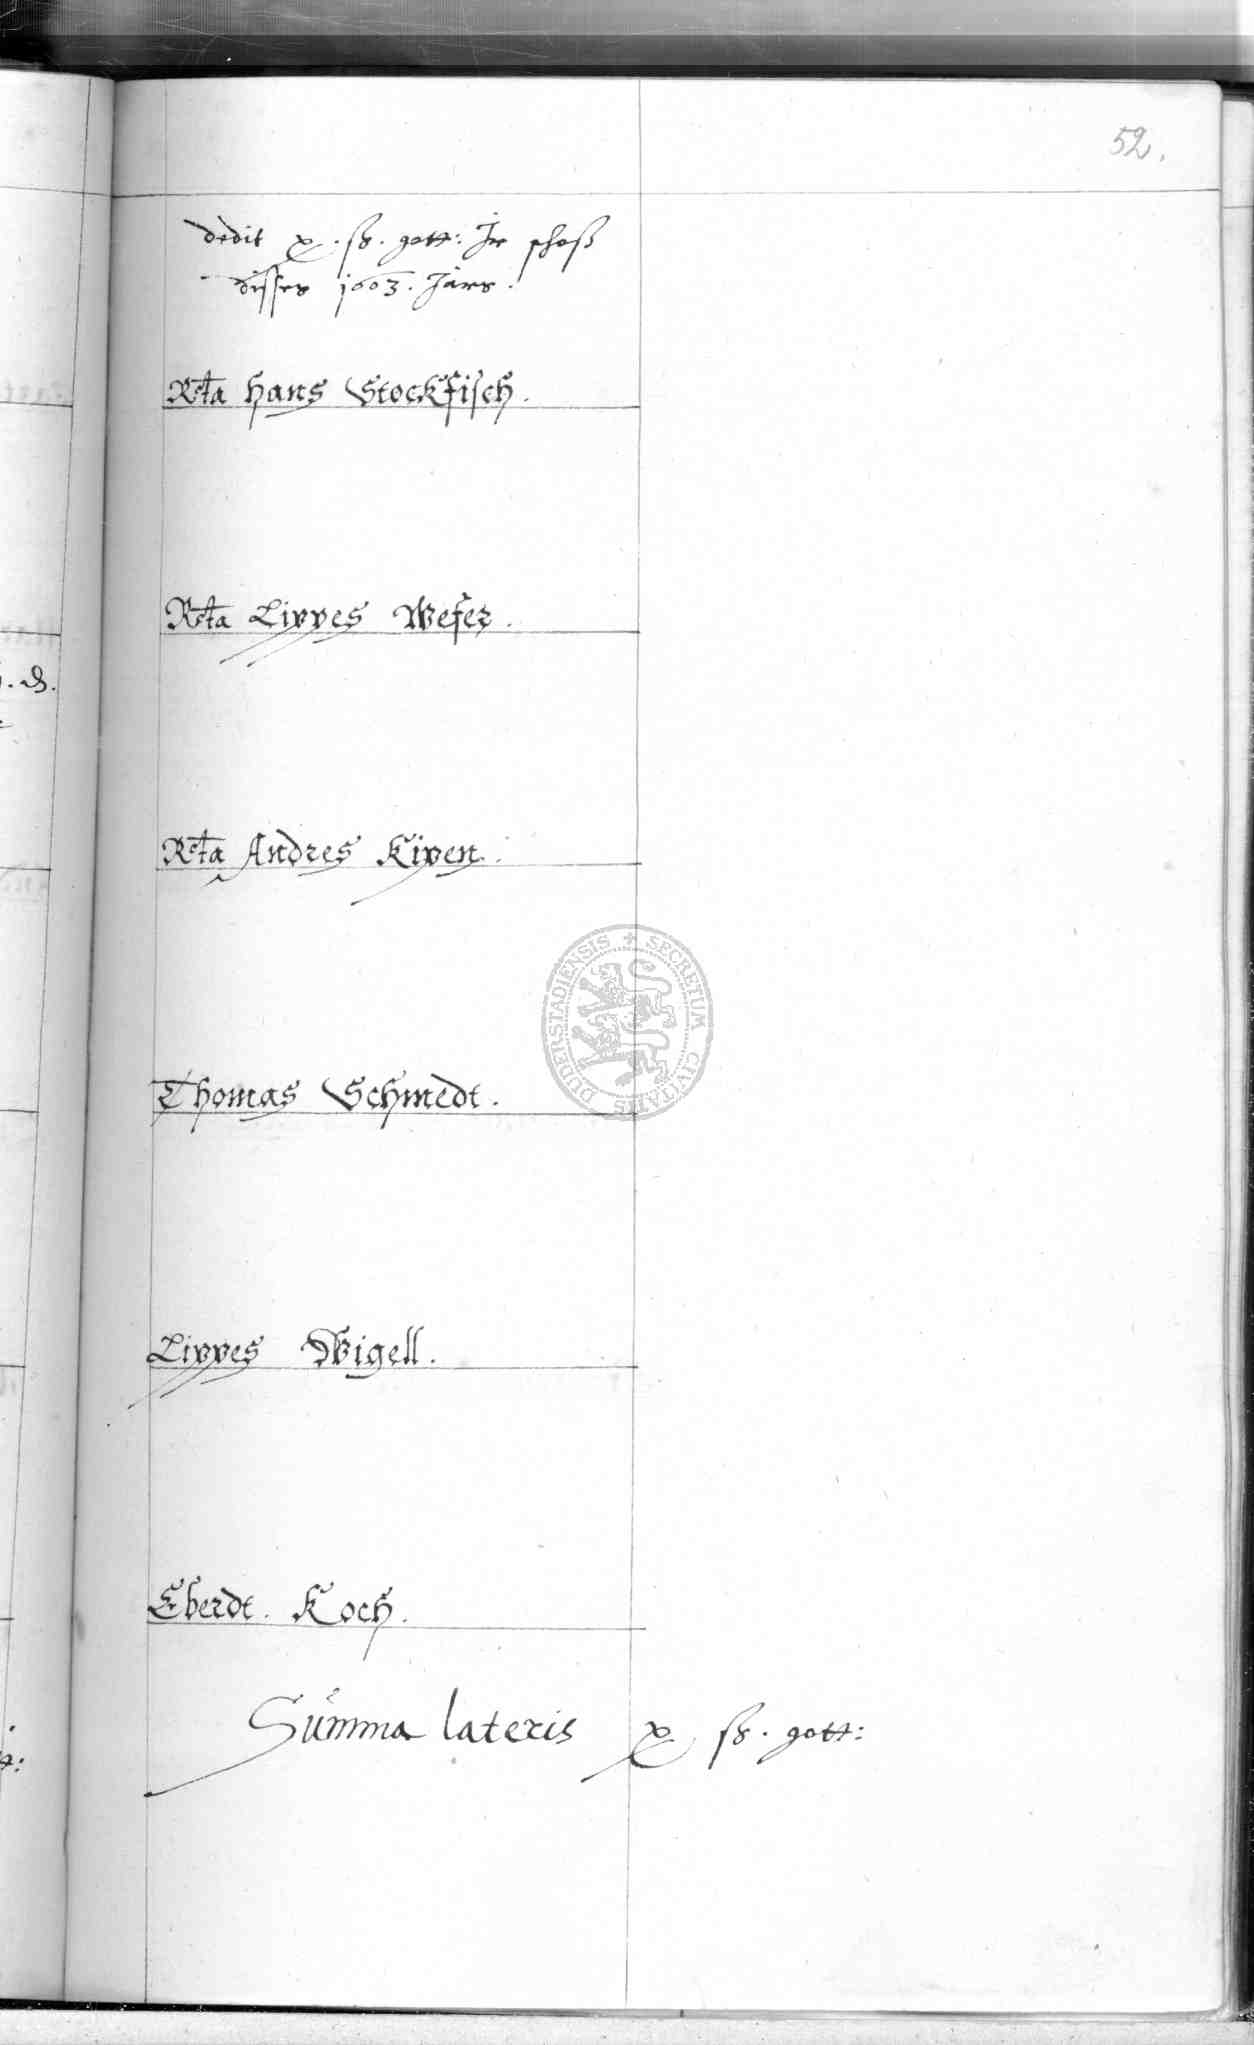 52.
dedit x . ß . gott: In schoß
disses 1603 . Jars .
Rcta Hans Stockfisch .
Rcta Lippes Wefer .
Rcta Andres Kipen .
Thomas Schmedt .
Lippes Wigell .
Eberdt . Koch .
Summa lateris x ß . gott:
SECRETUM CIVITATIS DUDERSTADIENSIS